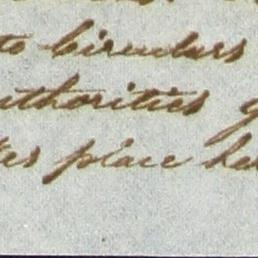 to Circulars
uthorities
es place ha